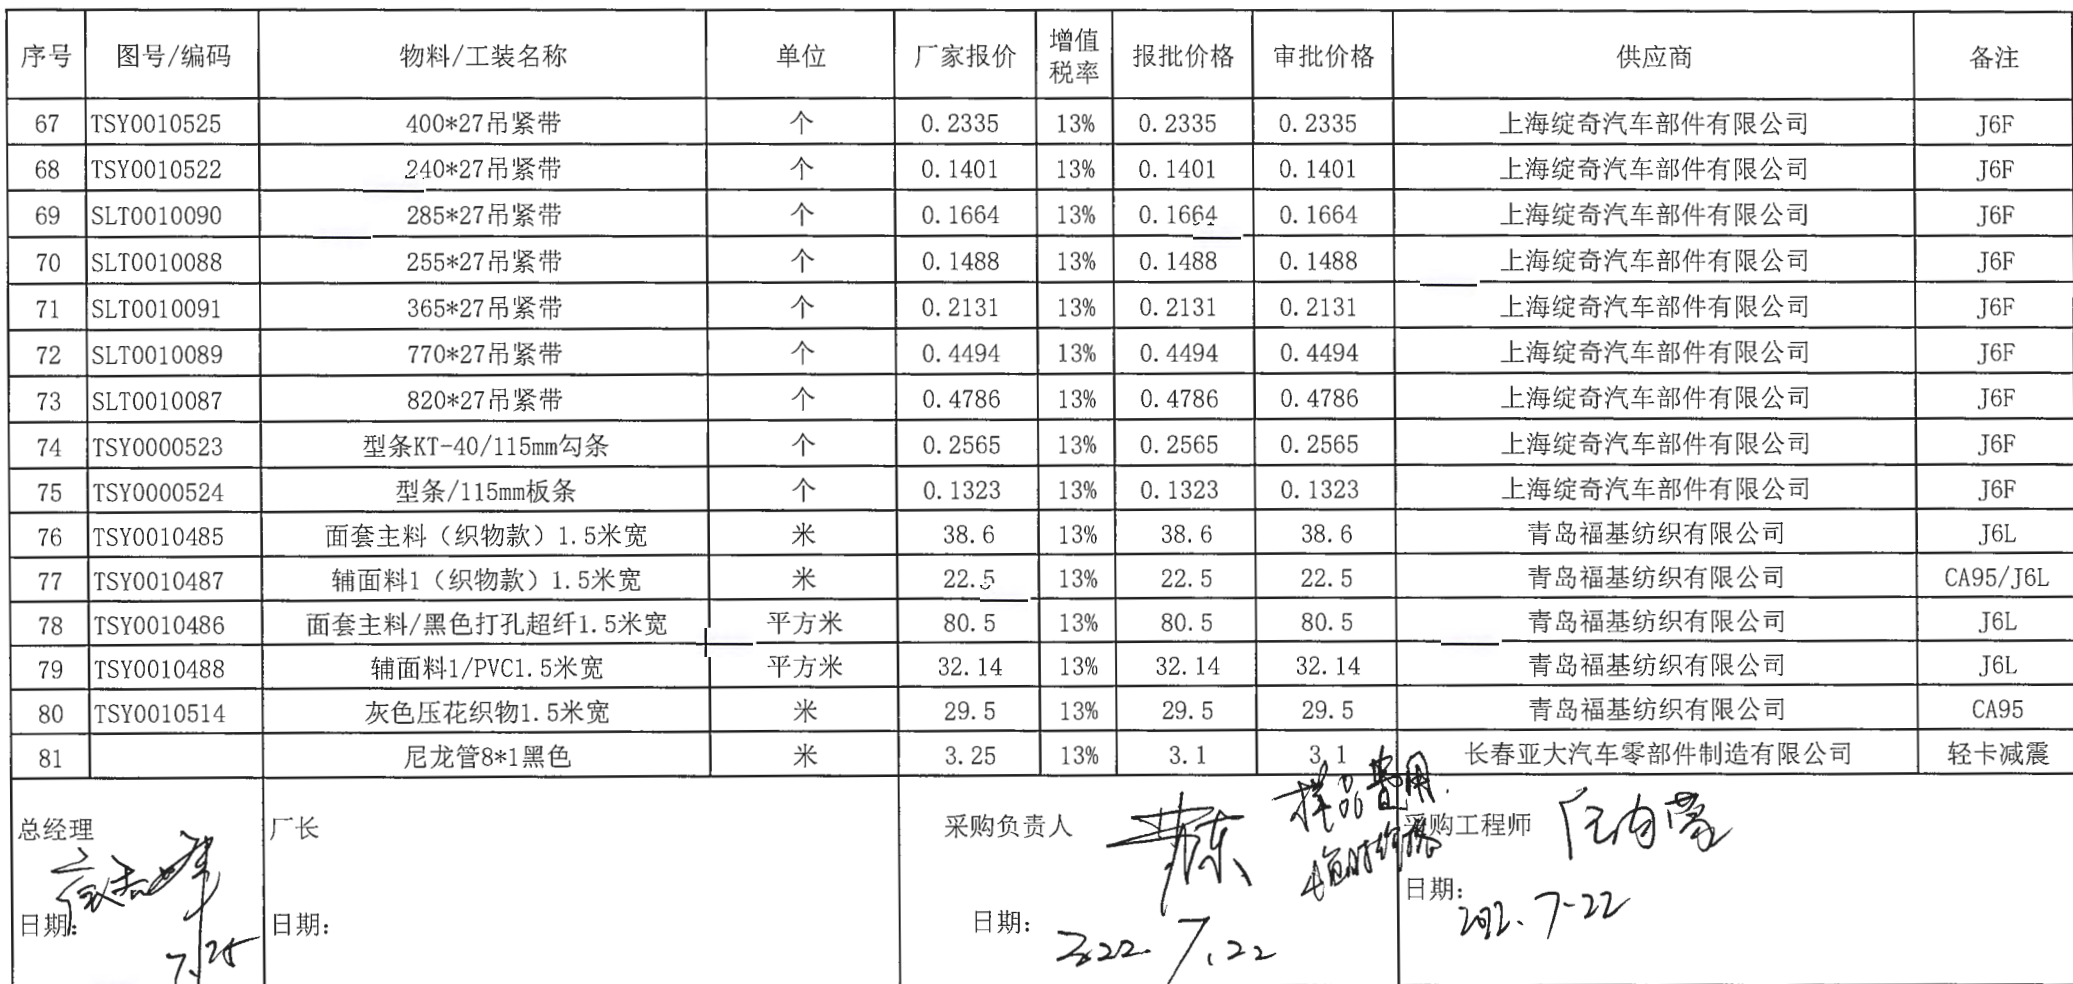 序号 图号/编码 物料/工装名称 单位 厂家报价 增值税率 报批价格 审批价格 供应商 备注
67 TSY0010525 400*27吊紧带 个 0.2335 13% 0.2335 0.2335 上海绽奇汽车部件有限公司 J6F
68 TSY0010522 240*27吊紧带 个 0.1401 13% 0.1401 0.1401 上海绽奇汽车部件有限公司 J6F
69 SLT0010090 285*27吊紧带 个 0.1664 13% 0.1664 0.1664 上海绽奇汽车部件有限公司 J6F
70 SLT0010088 255*27吊紧带 个 0.1488 13% 0.1488 0.1488 上海绽奇汽车部件有限公司 J6F
71 SLT0010091 365*27吊紧带 个 0.2131 13% 0.2131 0.2131 上海绽奇汽车部件有限公司 J6F
72 SLT0010089 770*27吊紧带 个 0.4494 13% 0.4494 0.4494 上海绽奇汽车部件有限公司 J6F
73 SLT0010087 820*27吊紧带 个 0.4786 13% 0.4786 0.4786 上海绽奇汽车部件有限公司 J6F
74 TSY0000523 型条KT-40/115mm勾条 个 0.2565 13% 0.2565 0.2565 上海绽奇汽车部件有限公司 J6F
75 TSY0000524 型条/115mm板条 个 0.1323 13% 0.1323 0.1323 上海绽奇汽车部件有限公司 J6F
76 TSY0010485 面套主料（织物款）1.5米宽 米 38.6 13% 38.6 38.6 青岛福基纺织有限公司 J6L
77 TSY0010487 辅面料1（织物款）1.5米宽 米 22.5 13% 22.5 22.5 青岛福基纺织有限公司 CA95/J6L
78 TSY0010486 面套主料/黑色打孔超纤1.5米宽 平方米 80.5 13% 80.5 80.5 青岛福基纺织有限公司 J6L
79 TSY0010488 辅面料1/PVC1.5米宽 平方米 32.14 13% 32.14 32.14 青岛福基纺织有限公司 J6L
80 TSY0010514 灰色压花织物1.5米宽 米 29.5 13% 29.5 29.5 青岛福基纺织有限公司 CA95
81 尼龙管8*1黑色 米 3.25 13% 3.1 3.1 长春亚大汽车零部件制造有限公司 轻卡减震
样品费用.
临时价格
总经理 厂长 采购负责人 采购工程师
日期: 7.25 日期: 日期: 2022.7.22 日期: 2022.7-22